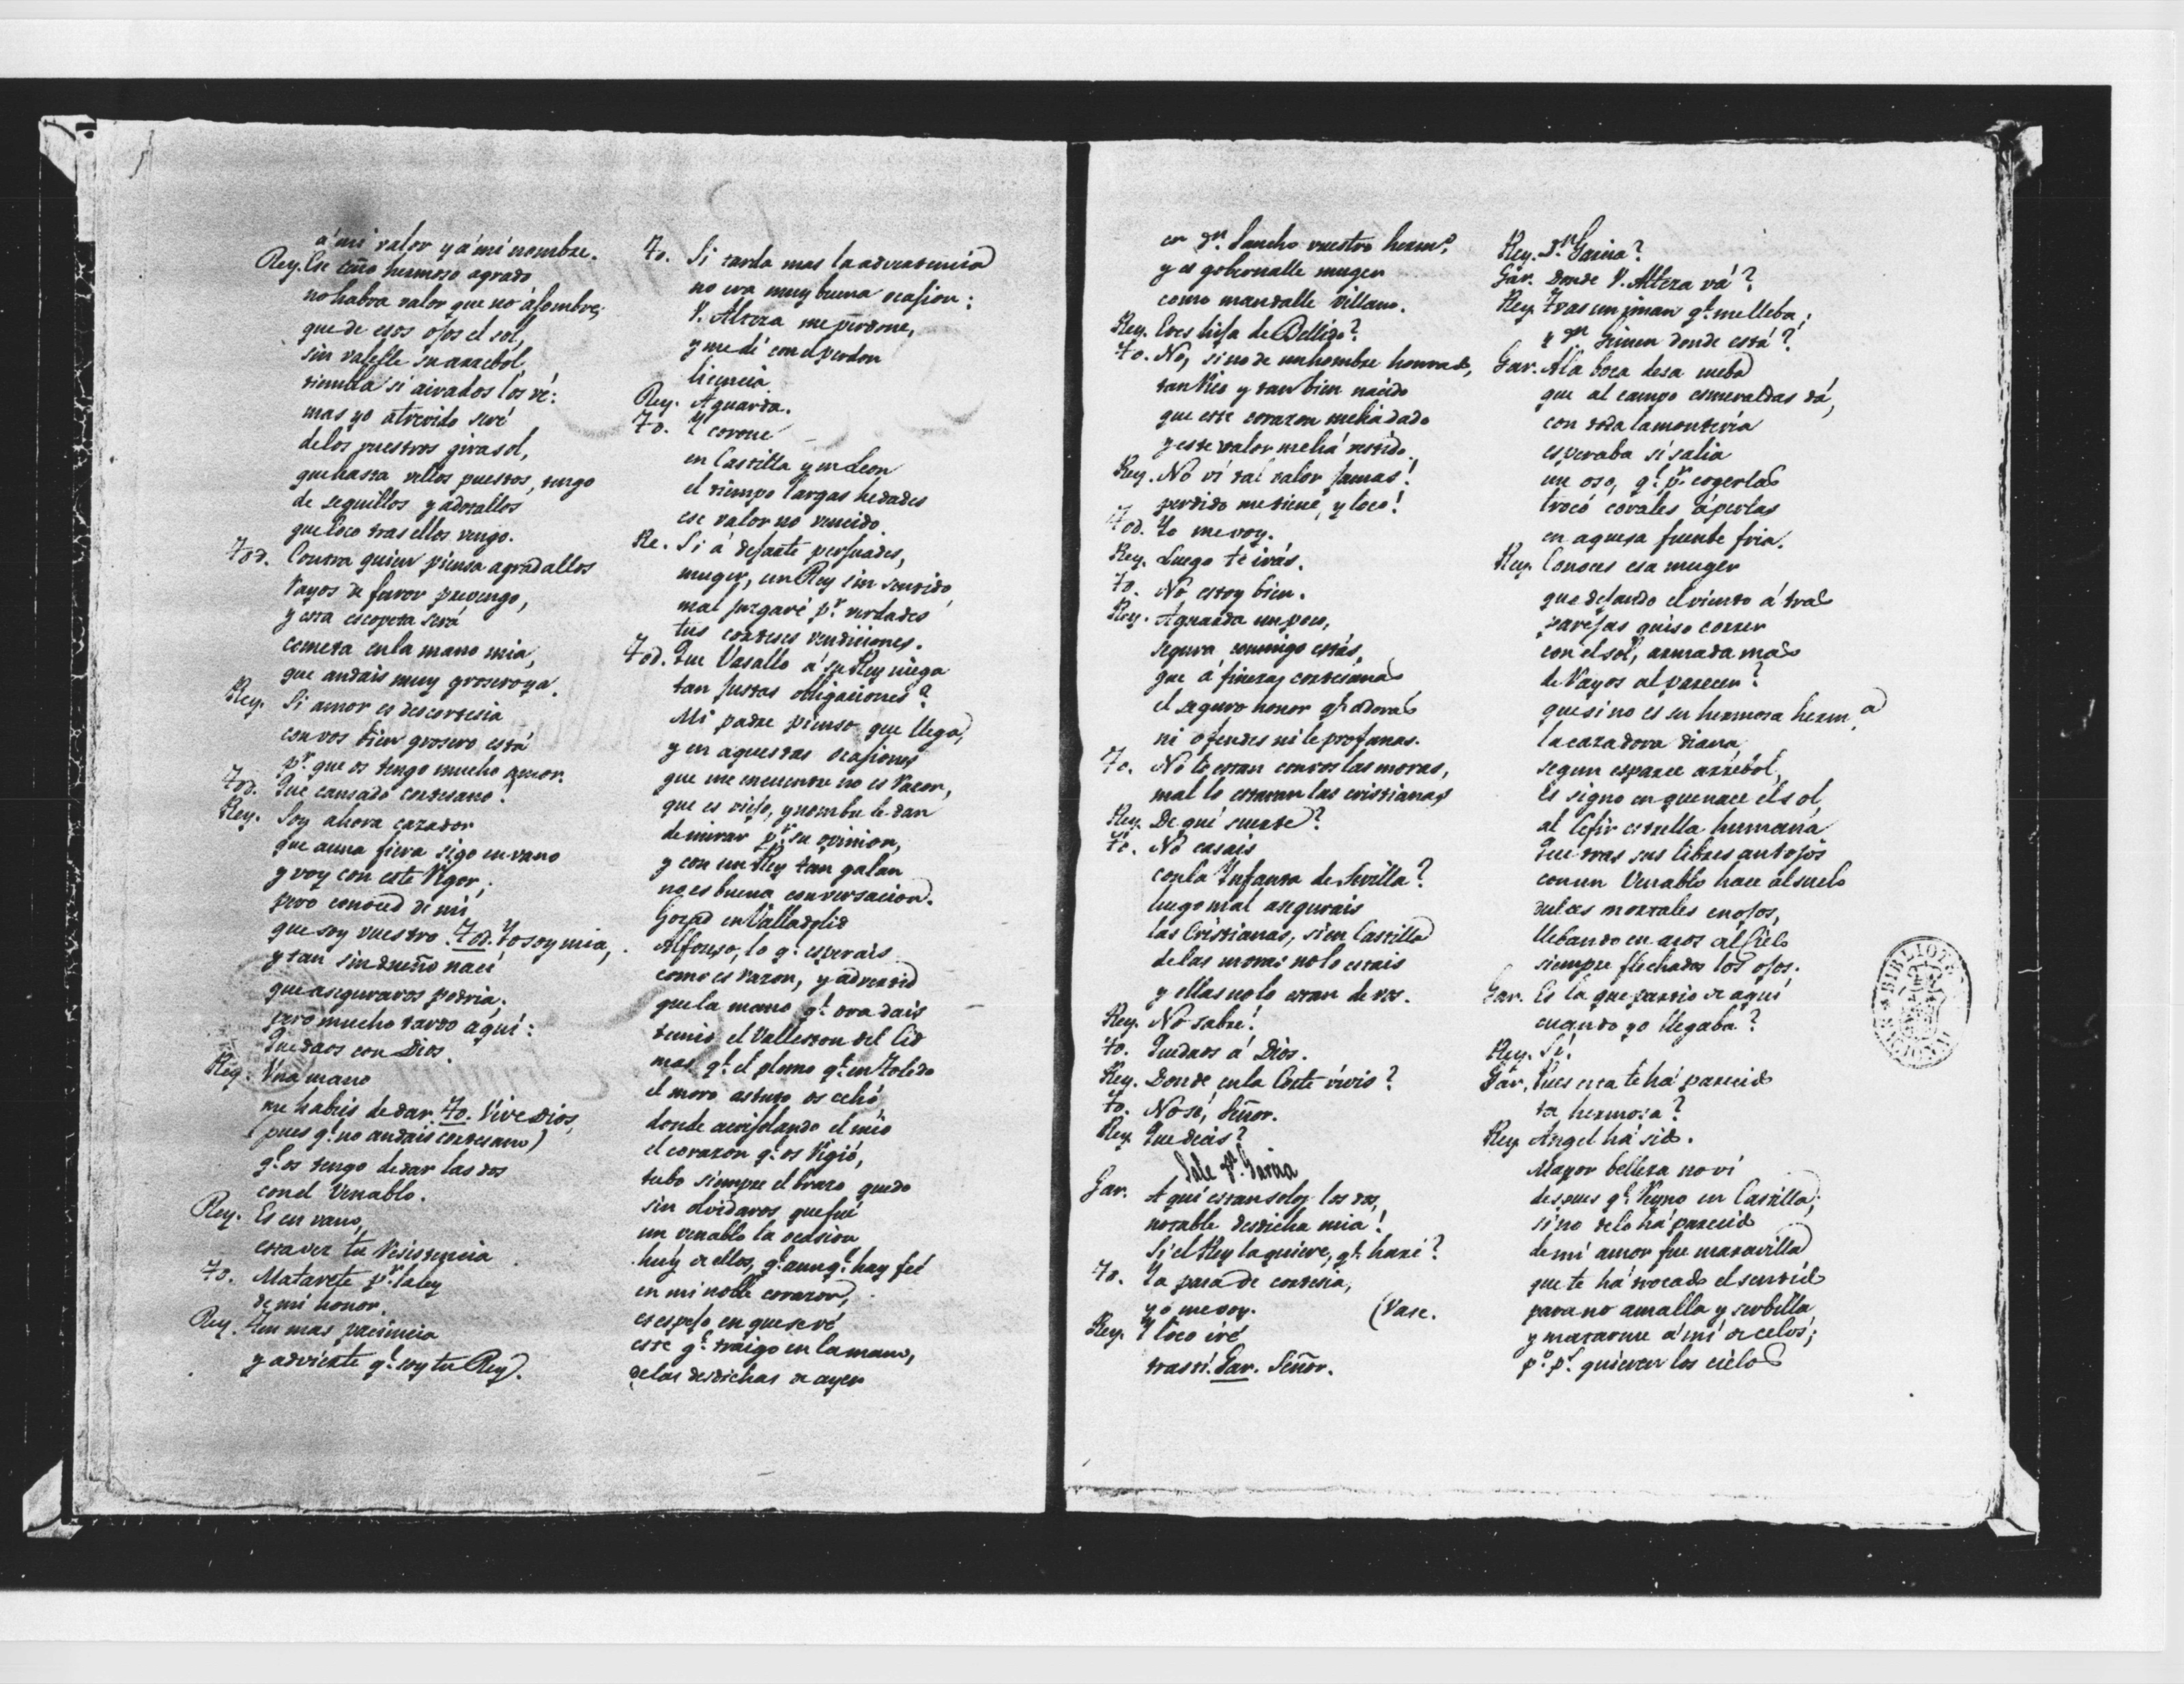 á mi valor y á mi nombre.
Rey. Ese ceño hermoso agrado
no habra valor que no àsombre;
que de esos ojos el sol,
sin valelle su arrebol,
tiembla si airados los vé:
mas yo atrevido seré
de los vuestros girasol,
que hasta vellos puestos, tengo
de seguillos y adorallos
que loco tras ellos vengo.
Tod. Contra quien piensa agradallos
Rayos de furor prevengo,
y esta escopeta será
cometa en la mano mia,
que andais muy grosero ya.
Rey. Si amor es descortesia
con vos bien grosero está
pr. que os tengo mucho amor.
Tod. Que cansado cortesano!
Rey. Soy ahora cazador
que a una fiera sigo en vano
y voy con este Rigor;
pero conoced de mi
que soy vuestro. Tod. Yo soy mia,
y tan sin dueño naci
que aseguraros podria;
pero mucho tardo aqui:
Quedaos con Dios.
Rey. Una mano
me habeis de dar. To. Vive Dios,
(pues q.e no andais cortesano)
q.e os tengo de dar las dos
con el Venablo.
Rey. Es en vano,
esta vez tu Resistencia
To. Matarete pr. la ley
de mi honor.
Rey. Ten mas paciencia
y advierte q.e soy tu Rey.
To. Si tarda mas la advertencia
no era muy buena ocasion:
V. Alteza me perdone,
y me dé con el perdon
licencia
Rey. Aguarda.
To. Y corone
en Castilla y en Leon
el tiempo largas hedades
ese valor no vencido.
Re. Si á dejarte persuades,
muger, un Rey sin sentido
mal juzgaré pr. verdades
tus corteses rendiciones.
Tod. Que Vasallo á su Rey niega
tan justas obligaciones?
Mi padre pienso que llega,
y en aquestas ocasiones
que me encuentre no es Razon,
que es viejo, y nombre le dan
de mirar pr. su opinion,
y con un Rey tan galan
no es buena conversacion.
Gozad en Valladolid
Alfonso, lo q.e esperais
como es razon, y advertid
que la mano q.e ora dais
temió el Valleston del Cid
mas q.e el plomo q.e en Toledo
el moro astuto os echó
donde acrisolando el mio
el corazon q.e os Rigió,
tubo siempre el brazo quedo
sin olvidaros que fué
un venablo la ocasion
huy de ellos, q.e aunq.e hay feé
en mi noble corazon,
es espejo en que se vé
este q.e traigo en la mano,
de las desdichas de ayer
en Dn. Sancho vuestro hermo.
y es gobernalle muger
como mandalle villano.
Rey. Eres hija de Bellido?
To. No, sino de un hombre honrado,
tan Rico y tan bien nacido
que este corazon me ha dado
y este valor me há vestido.
Rey. No ví tal valor jamas!
perdido me tiene, y loco!
Tod. Yo me voy.
Rey. Luego te irás.
To. No estoy bien.
Rey. Aguarda un poco,
segura conmigo estás,
que á finezas cortesanas
el seguro honor q.e adoras
ni ofendes ni le profanas.
To. No lo estan con vos las moras,
mal lo estaran las cristianas
Rey. De qué suerte?
To. No casais
con la Infanta de Sevilla?
luego mal asegurais
las Cristianas, si en Castilla
de las moras no lo estais
y ellas no lo estan de vos.
Rey. No sabré!
To. Quedaos á Dios.
Rey. Donde en la Corte vivis?
To. No sé, Señor.
Rey. Que decis?
Sale Dn. Garcia
Gar. Aqui estan solos los dos,
notable desdicha mia!
Si el Rey la quiere, q.e haré?
To. Ya para de cortesia,
yo me voy. (Vase.
Rey. Y loco iré
tras ti. Gar. Señor.
Rey. Dn. Garcia?
Gar. Donde V. Alteza vá?
Rey. Tras un iman q.e me lleba;
y Dn. Gimen donde está?
Gar. A la boca desa cueba
que al campo esmeraldas dá,
con toda la monteria
esperaba si salia
un oso, q.e pr. cogerlas
trocó corales á perlas
en aquesa fuente fria.
Rey. Conoces esa muger
que dejando el viento á tras
parejas quiso correr
con el sol, armada mas
de Rayos al parecer?
que si no es su hermosa herma.
la cazadora diana,
segun esparce arrebol,
Es signo en que nace el sol
al Cefir estrella humana
Que tras sus libres antojos
con un Venablo hace al suelo
dulces mortales enojos,
llebando en arcos al Cielo
siempre flechados los ojos.
Gar. Es la que partio de aqui
cuando yo llegaba?
Rey. Si.
Gar. Pues esa te há parecido
ta hermosa?
Rey. Angel há sido.
Mayor belleza no ví
despues q.e Reyno en Castilla;
si no de lo há parecido
de mí amor fue maravilla
que te há trocado el sentido
para no amalla y serbilla
y matarme á mí de celos;
po. pr. quieren los cielos